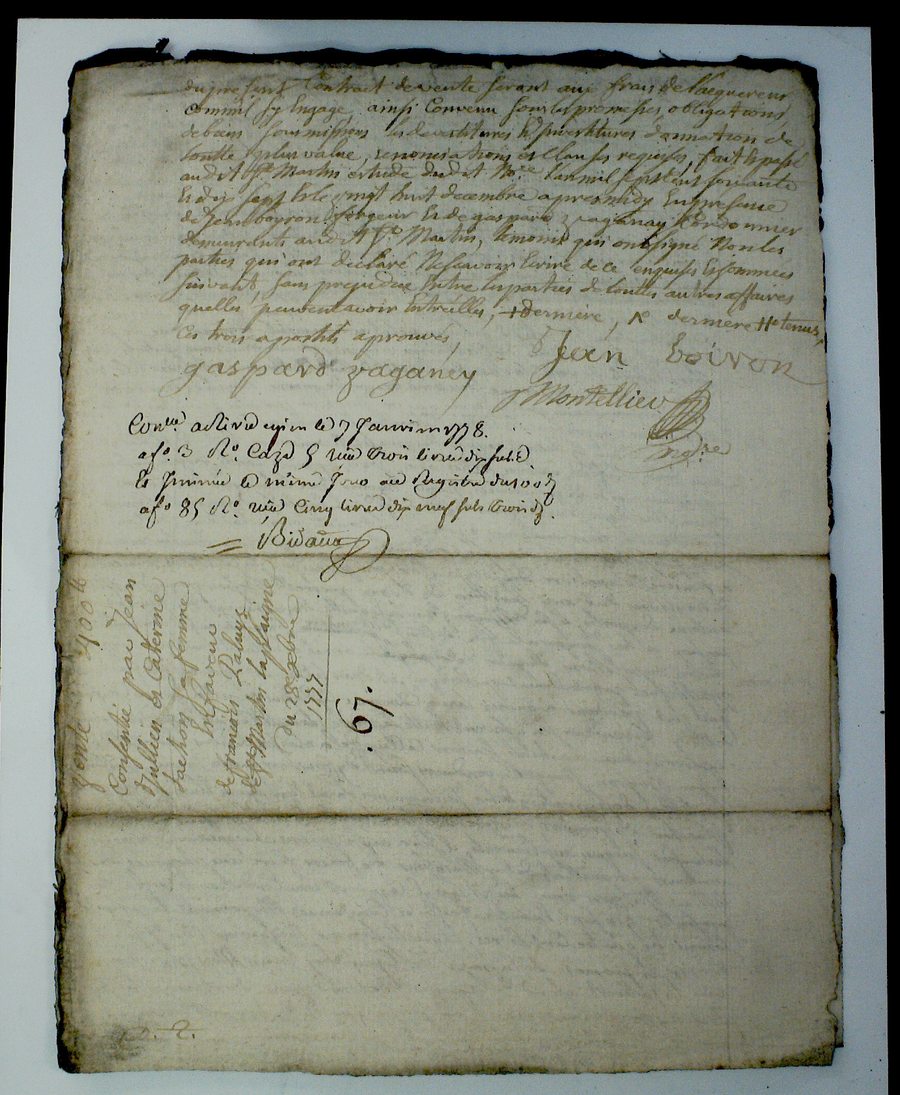 du present Contract de vente seront aux frais de l'acquereur
comme il sy Engage, ainsi Convenu sous les promesses obligations
de biens soumissions les devestitures Investitures donnation de
toutte plus value, renonciations et Clauses requises, fait et passé
audit St Martin estude dudit Nore L'an mil sept cent soixante
Et dix sept Et le vingt huit decembre apres midy En presence
de Jean boyron Et de gaspard vaganay Cordonnier
demeurants audit St Martin, temoins qui ont signé Non les
parties qui ont declaré Ne scavoir Ecrire de ce enquises Et sommées
suivant, sans prejudice Entre les parties de toutes autres affaires
quelles peuvent avoir Entr'elles, + derniere, derniere tt tenus,
Ces trois apostils aprouvés,
Jean boiron
gaspard vaganey
Montellier
Conllé a Rive de gier le 7 Janvier 1778.
a fo. 3 Ro. Caze 5 reçu trois livres dix sols
Et Insinué le même jour au Registre du 100d
a fo 85 Ro. reçu Cinq livres dix neuf sols trois d.
vente 400 tt
Consentie par Jean
Jullien et Caterine
sa femme
En faveur
de francois Paluy
de St Martin la plaigne
du 28 Xbre
1777
67.